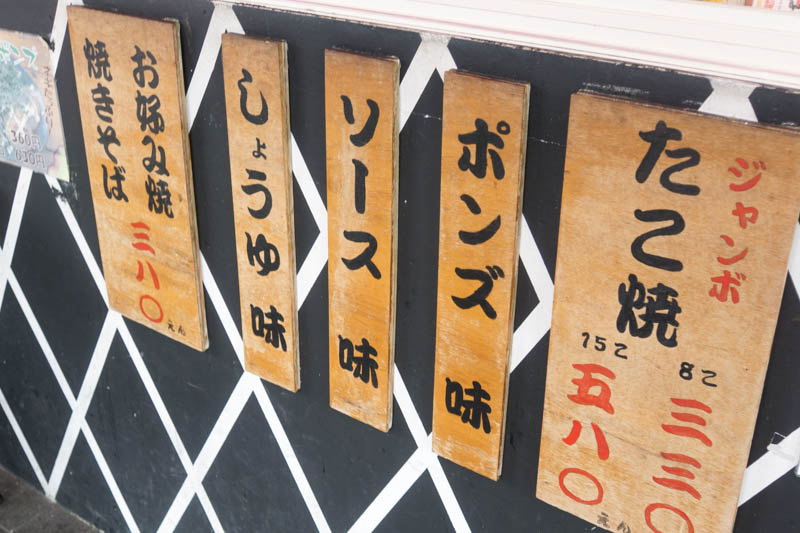 ジャンボ
たこ焼
8こ
三三〇
15こ
五八〇
えん
ポンズ味
ソース味
しょうゆ味
お好み焼
焼きそば
三八〇
えん
360円
630円